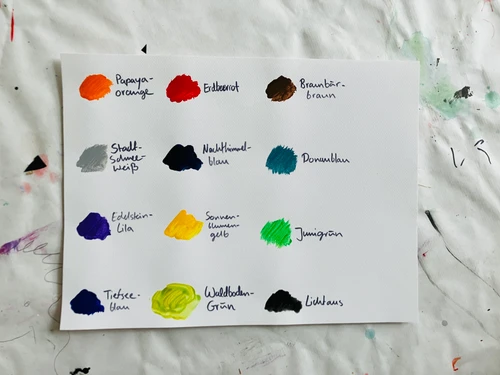 Papaya-
orange
Erdbeerrot
Braunbär-
braun
Stadt-
schnee-
weiß
Nachthimmel-
blau
Donaublau
Edelstein-
lila
Sonnen-
blumen-
gelb
Junigrün
Tiefsee-
blau
Waldboden-
Grün
Lichtaus